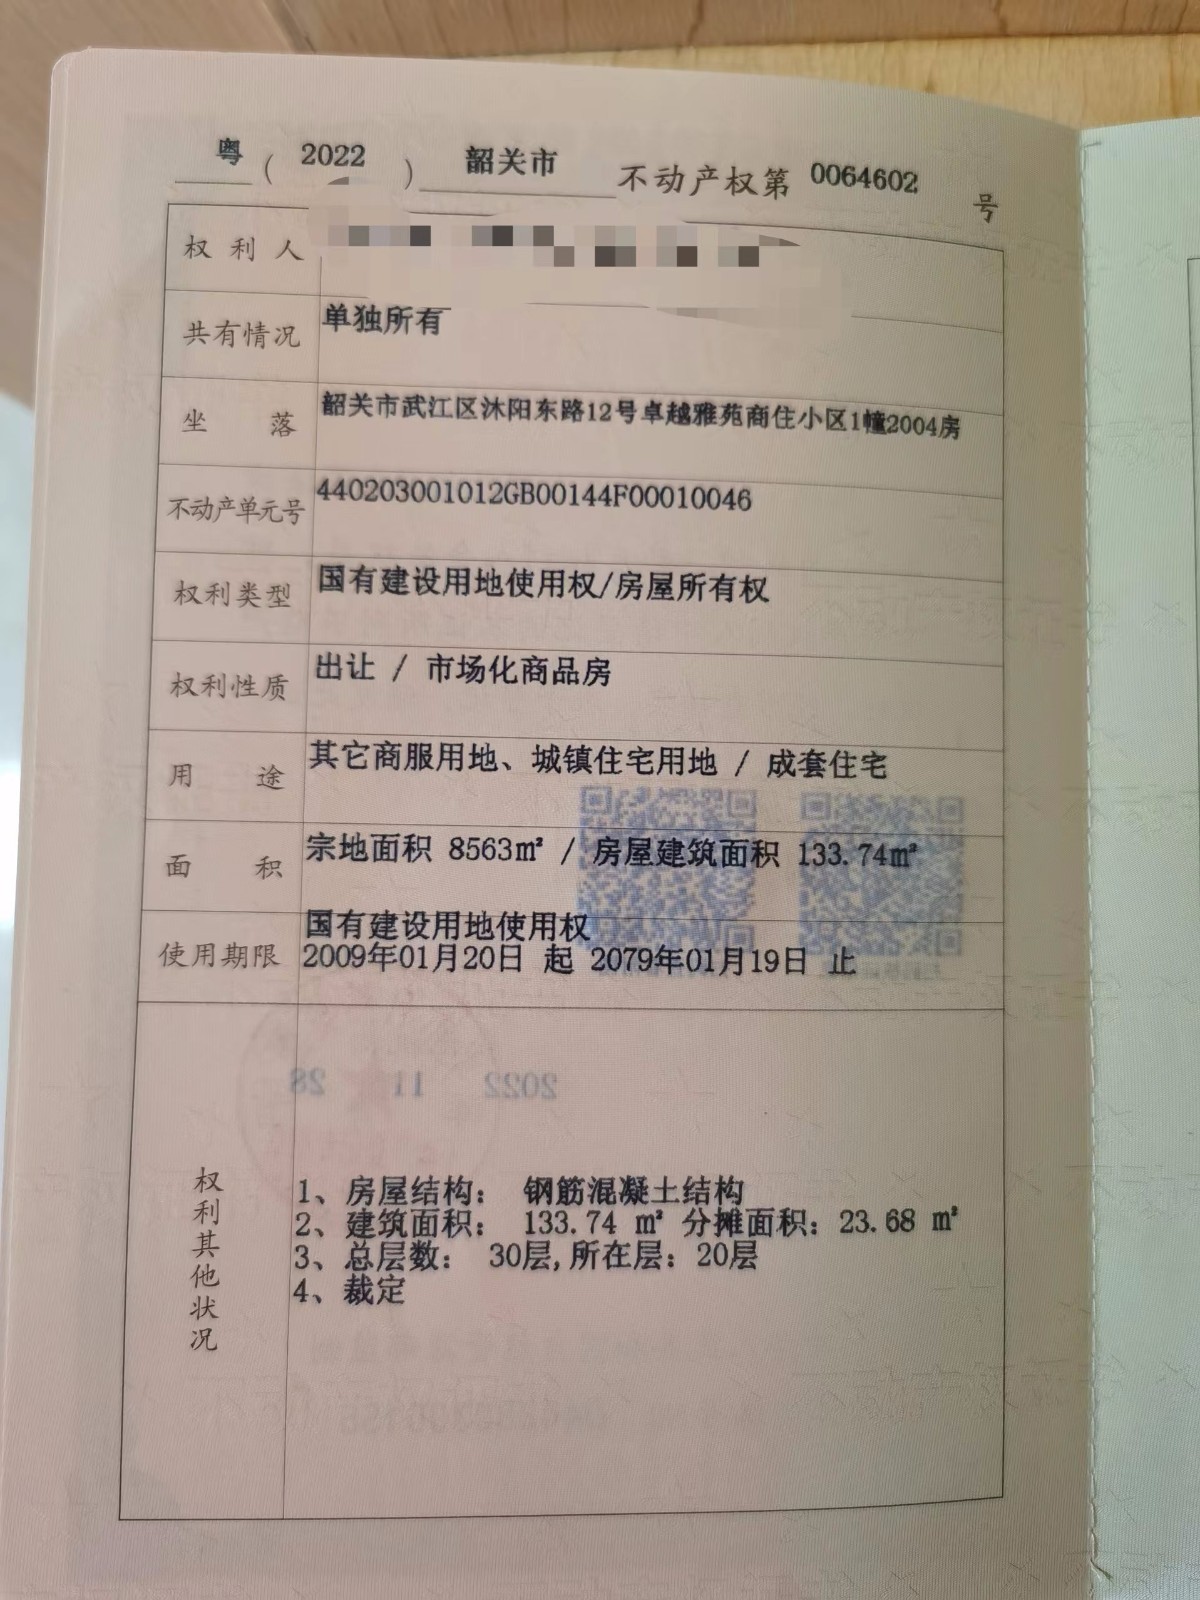 粤（2022）韶关市 不动产权第 0064602 号
权利人
共有情况 单独所有
坐落 韶关市武江区沐阳东路12号卓越雅苑商住小区1幢2004房
不动产单元号 440203001012GB00144F00010046
权利类型 国有建设用地使用权/房屋所有权
权利性质 出让 / 市场化商品房
用途 其它商服用地、城镇住宅用地 / 成套住宅
面积 宗地面积 8563㎡ / 房屋建筑面积 133.74㎡
使用期限 国有建设用地使用权
2009年01月20日 起 2079年01月19日 止
2022 11 28
权利其他状况
1、房屋结构： 钢筋混凝土结构
2、建筑面积： 133.74 ㎡ 分摊面积：23.68 ㎡
3、总层数： 30层,所在层：20层
4、裁定